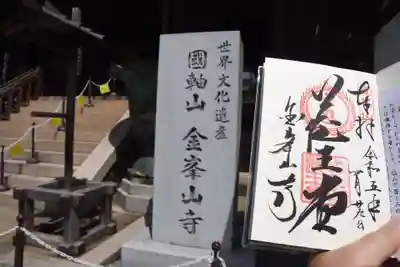 世界文化遺産
國軸山 金峯山寺
奉拝 令和五年
蔵王堂
金峯山寺